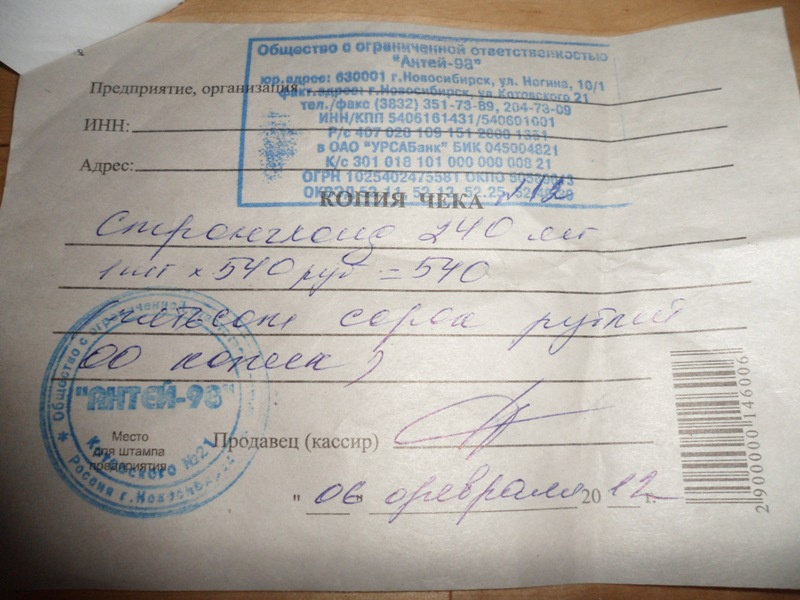 Общество с ограниченной ответственностью
"Антей-98"
юр.адрес: 630001 г.Новосибирск, ул. Ногина, 10/1
Предприятие, организация
факт.адрес: г.Новосибирск, ул.Котовского 21
тел./факс (3832) 351-73-89, 204-73-09
ИНН:
ИНН/КПП 5406161431/540601001
Р/с 407 028 109 151 2000 1351
в ОАО "УРСАБанк" БИК 045004821
Адрес:
К/с 301 018 101 000 000 008 21
ОГРН 1025402475581 ОКПО
ОКВЭД 52.11, 52.12, 52.25,
КОПИЯ ЧЕКА
240 мл
1 шт х 540 руб = 540
(пятьсот сорок рублей
00 копеек)
Общество с ограниченной
"АНТЕЙ-98"
Котовского №21
Россия г.Новосибирск
Место
для штампа
предприятия
Продавец (кассир)
"06" февраля 2012 г.
2900000146006